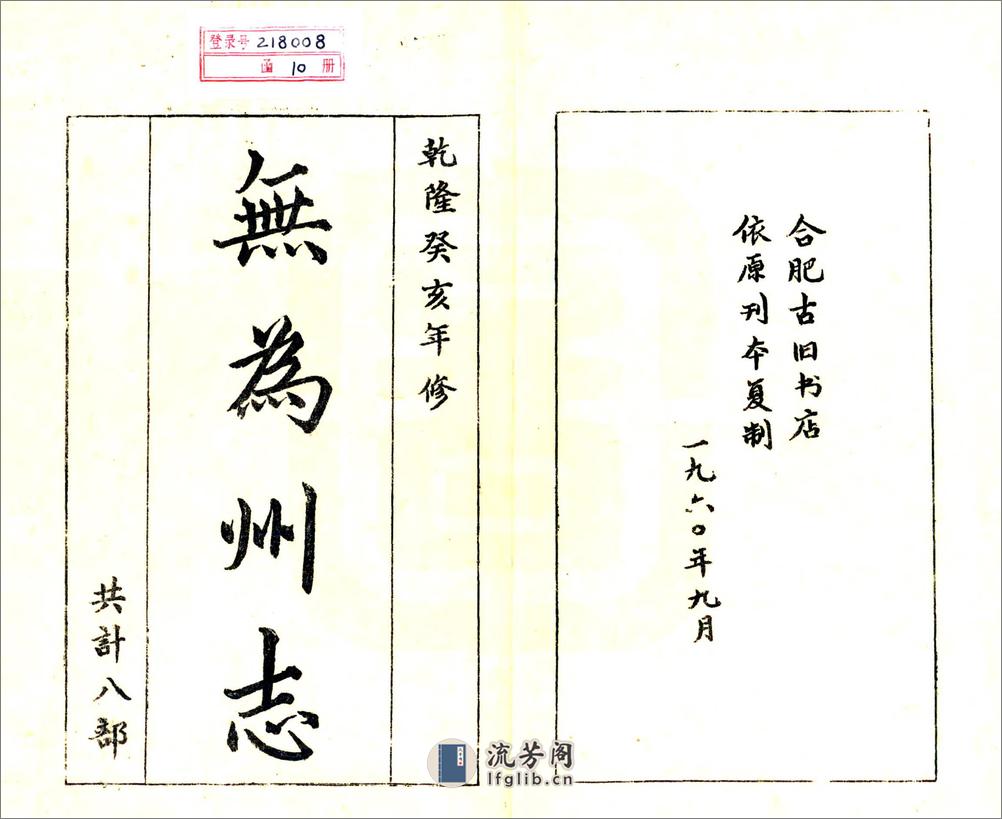 登录号 218008
函 10 册
合肥古旧书店
依原刊本复制
一九六〇年九月
乾隆癸亥年修
無為州志
共計八部
流芳阁
lfglib.cn